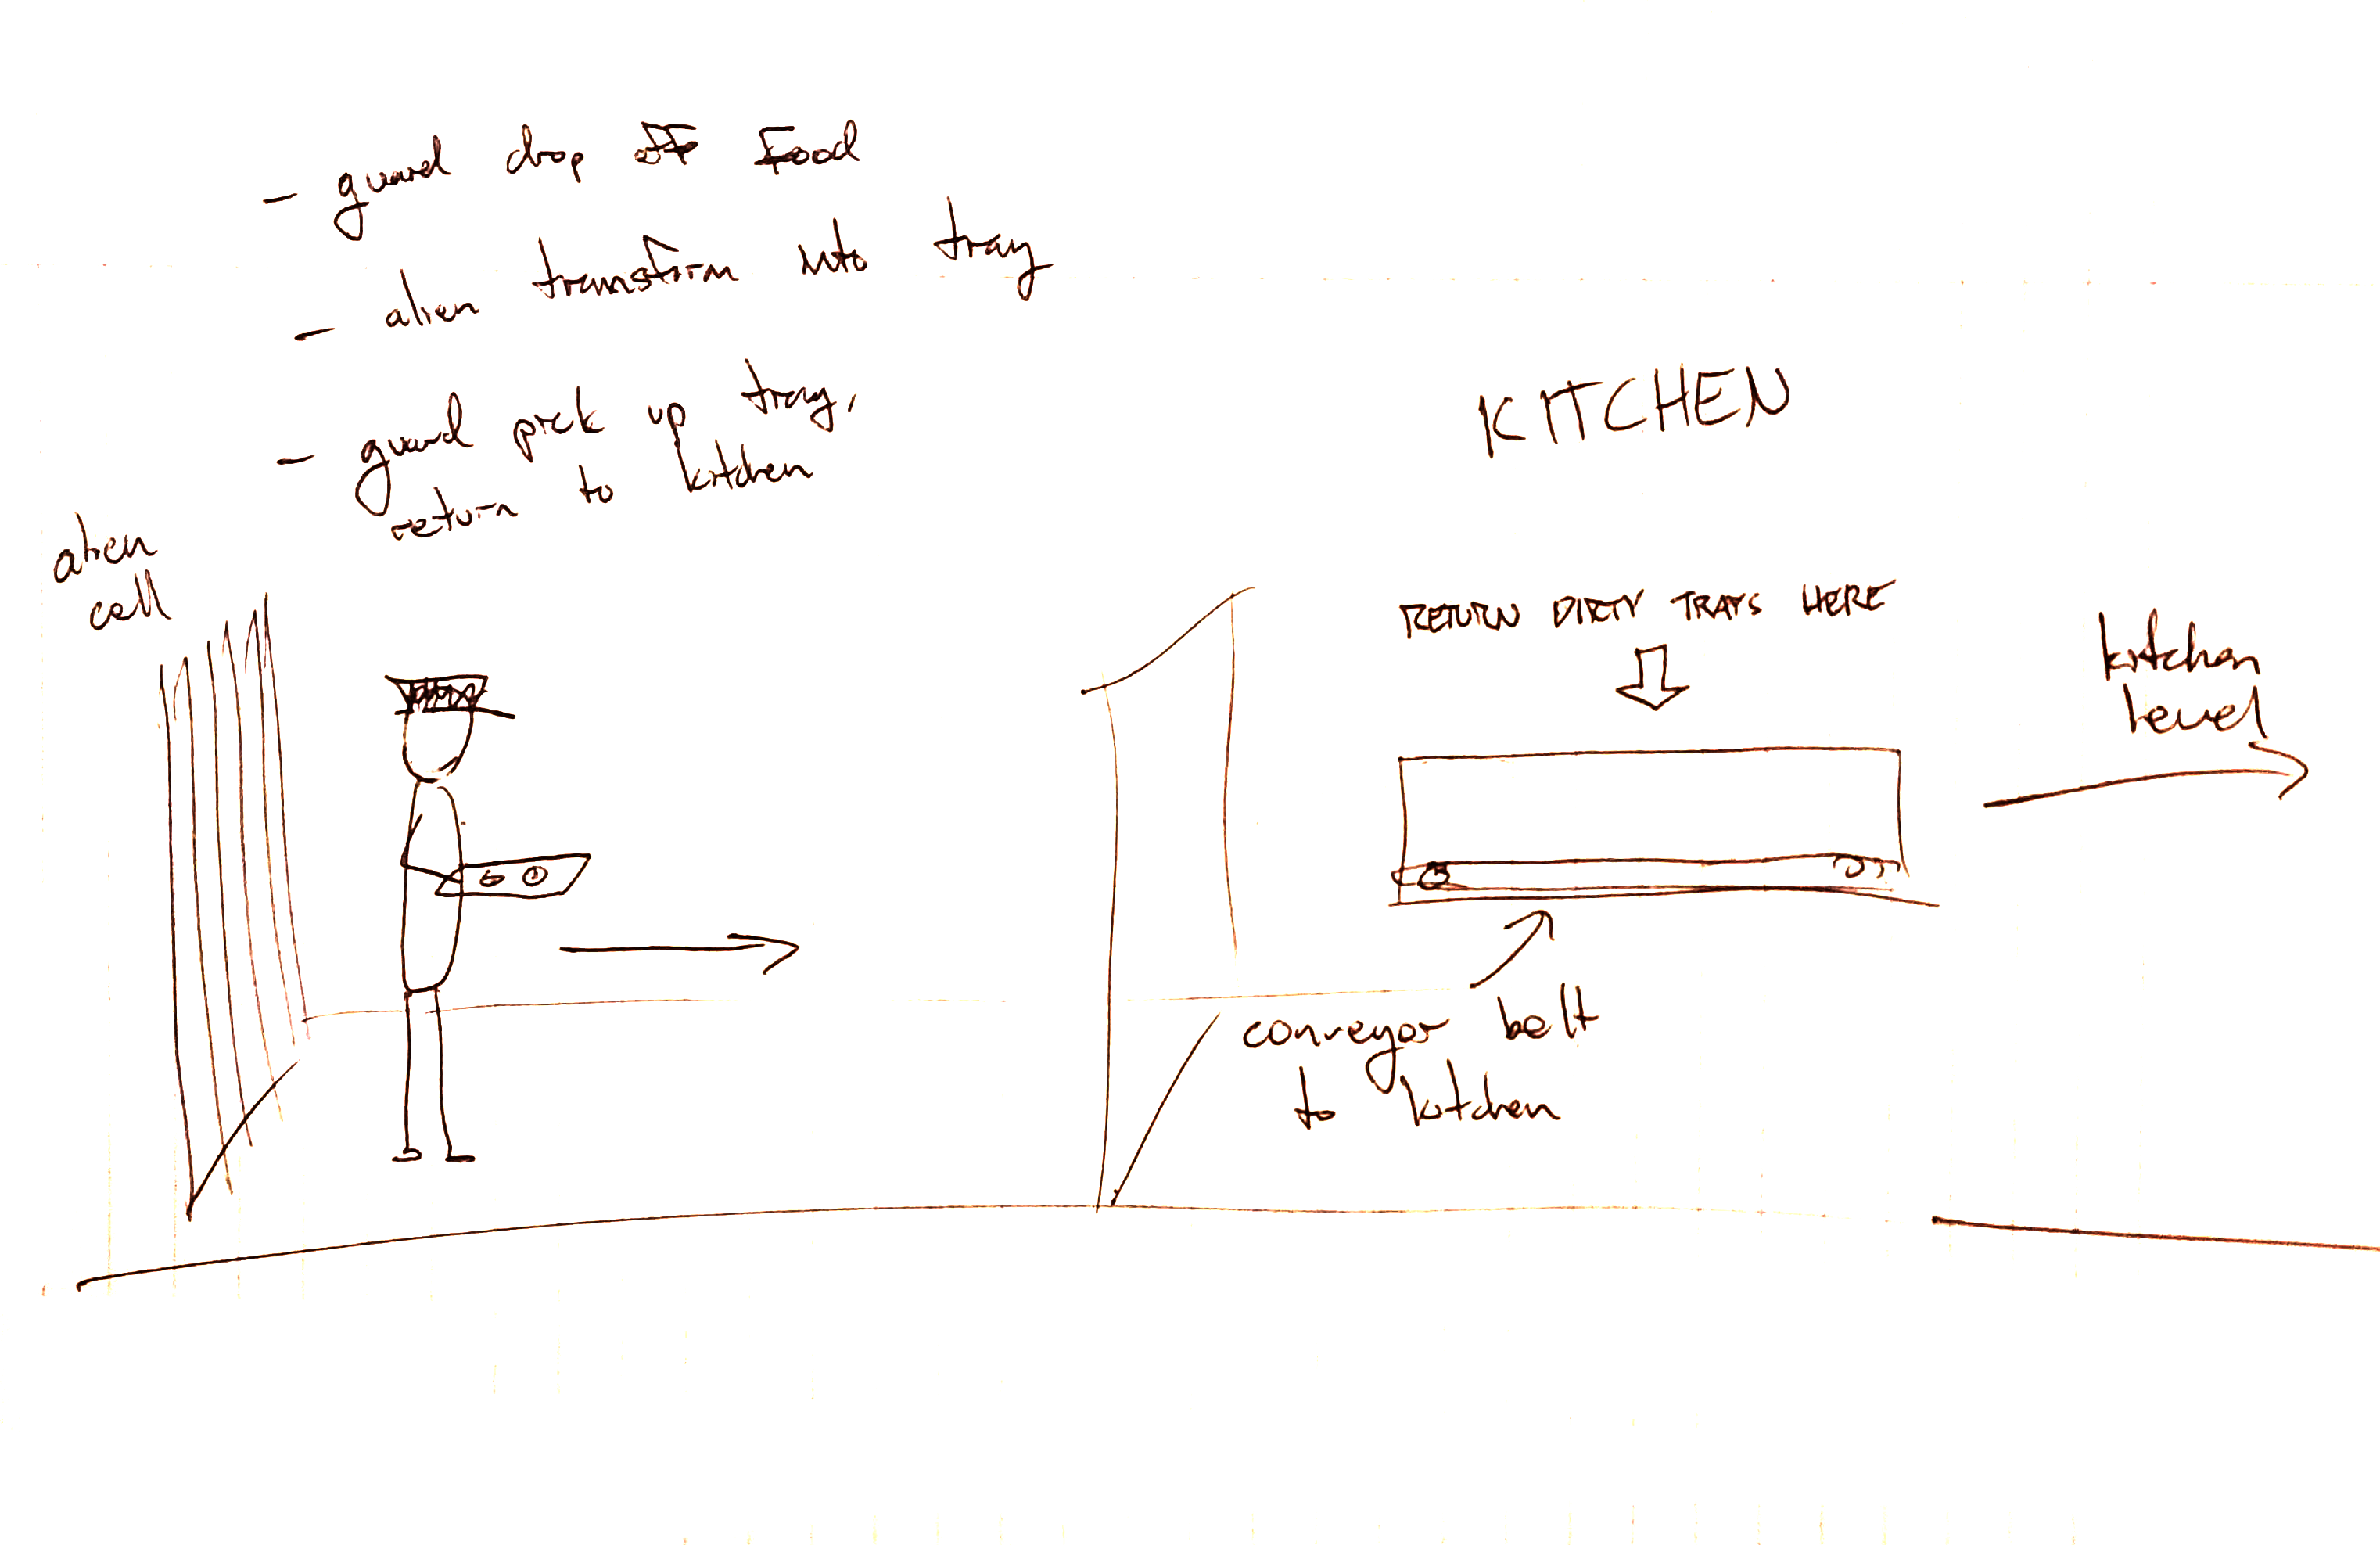 - guard drop off Food
- alien transform into tray
- guard pick up tray,
return to kitchen
alien
cell
KITCHEN
RETURN DIRTY TRAYS HERE
kitchen
level
conveyor belt
to kitchen